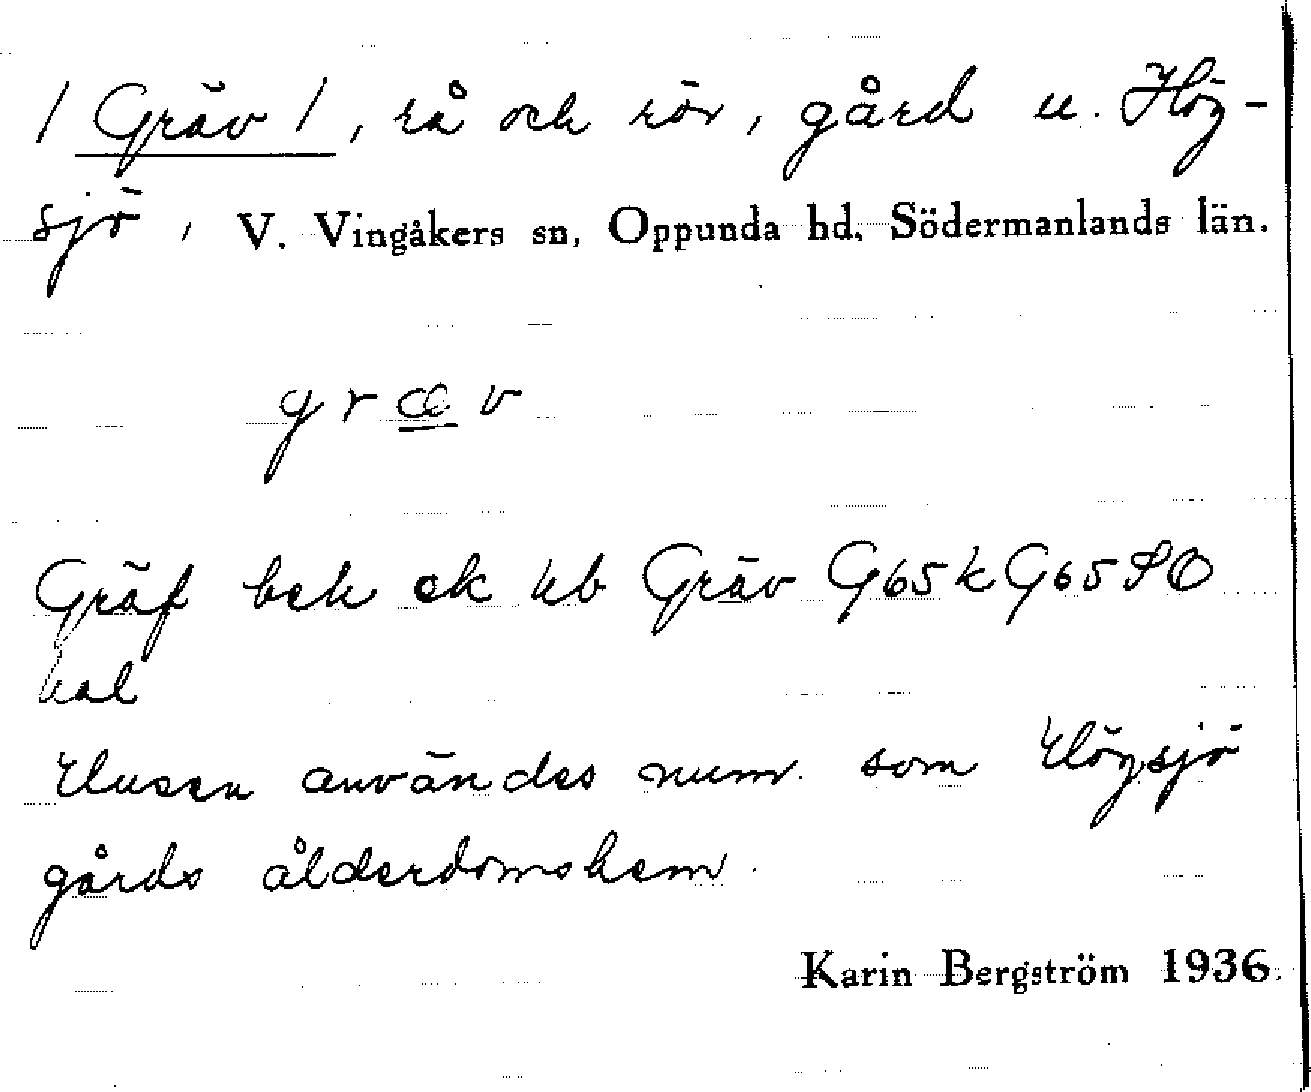 / Gräv /, rå och rör, gård u. Hög-
sjö, V. Vingåkers sn, Oppunda hd, Södermanlands län.
græv
Gräf bek ek Gräv G65k G65SO
kal
Husen användes numr. som Högsjö
gårds ålderdomshem.
Karin Bergström 1936.